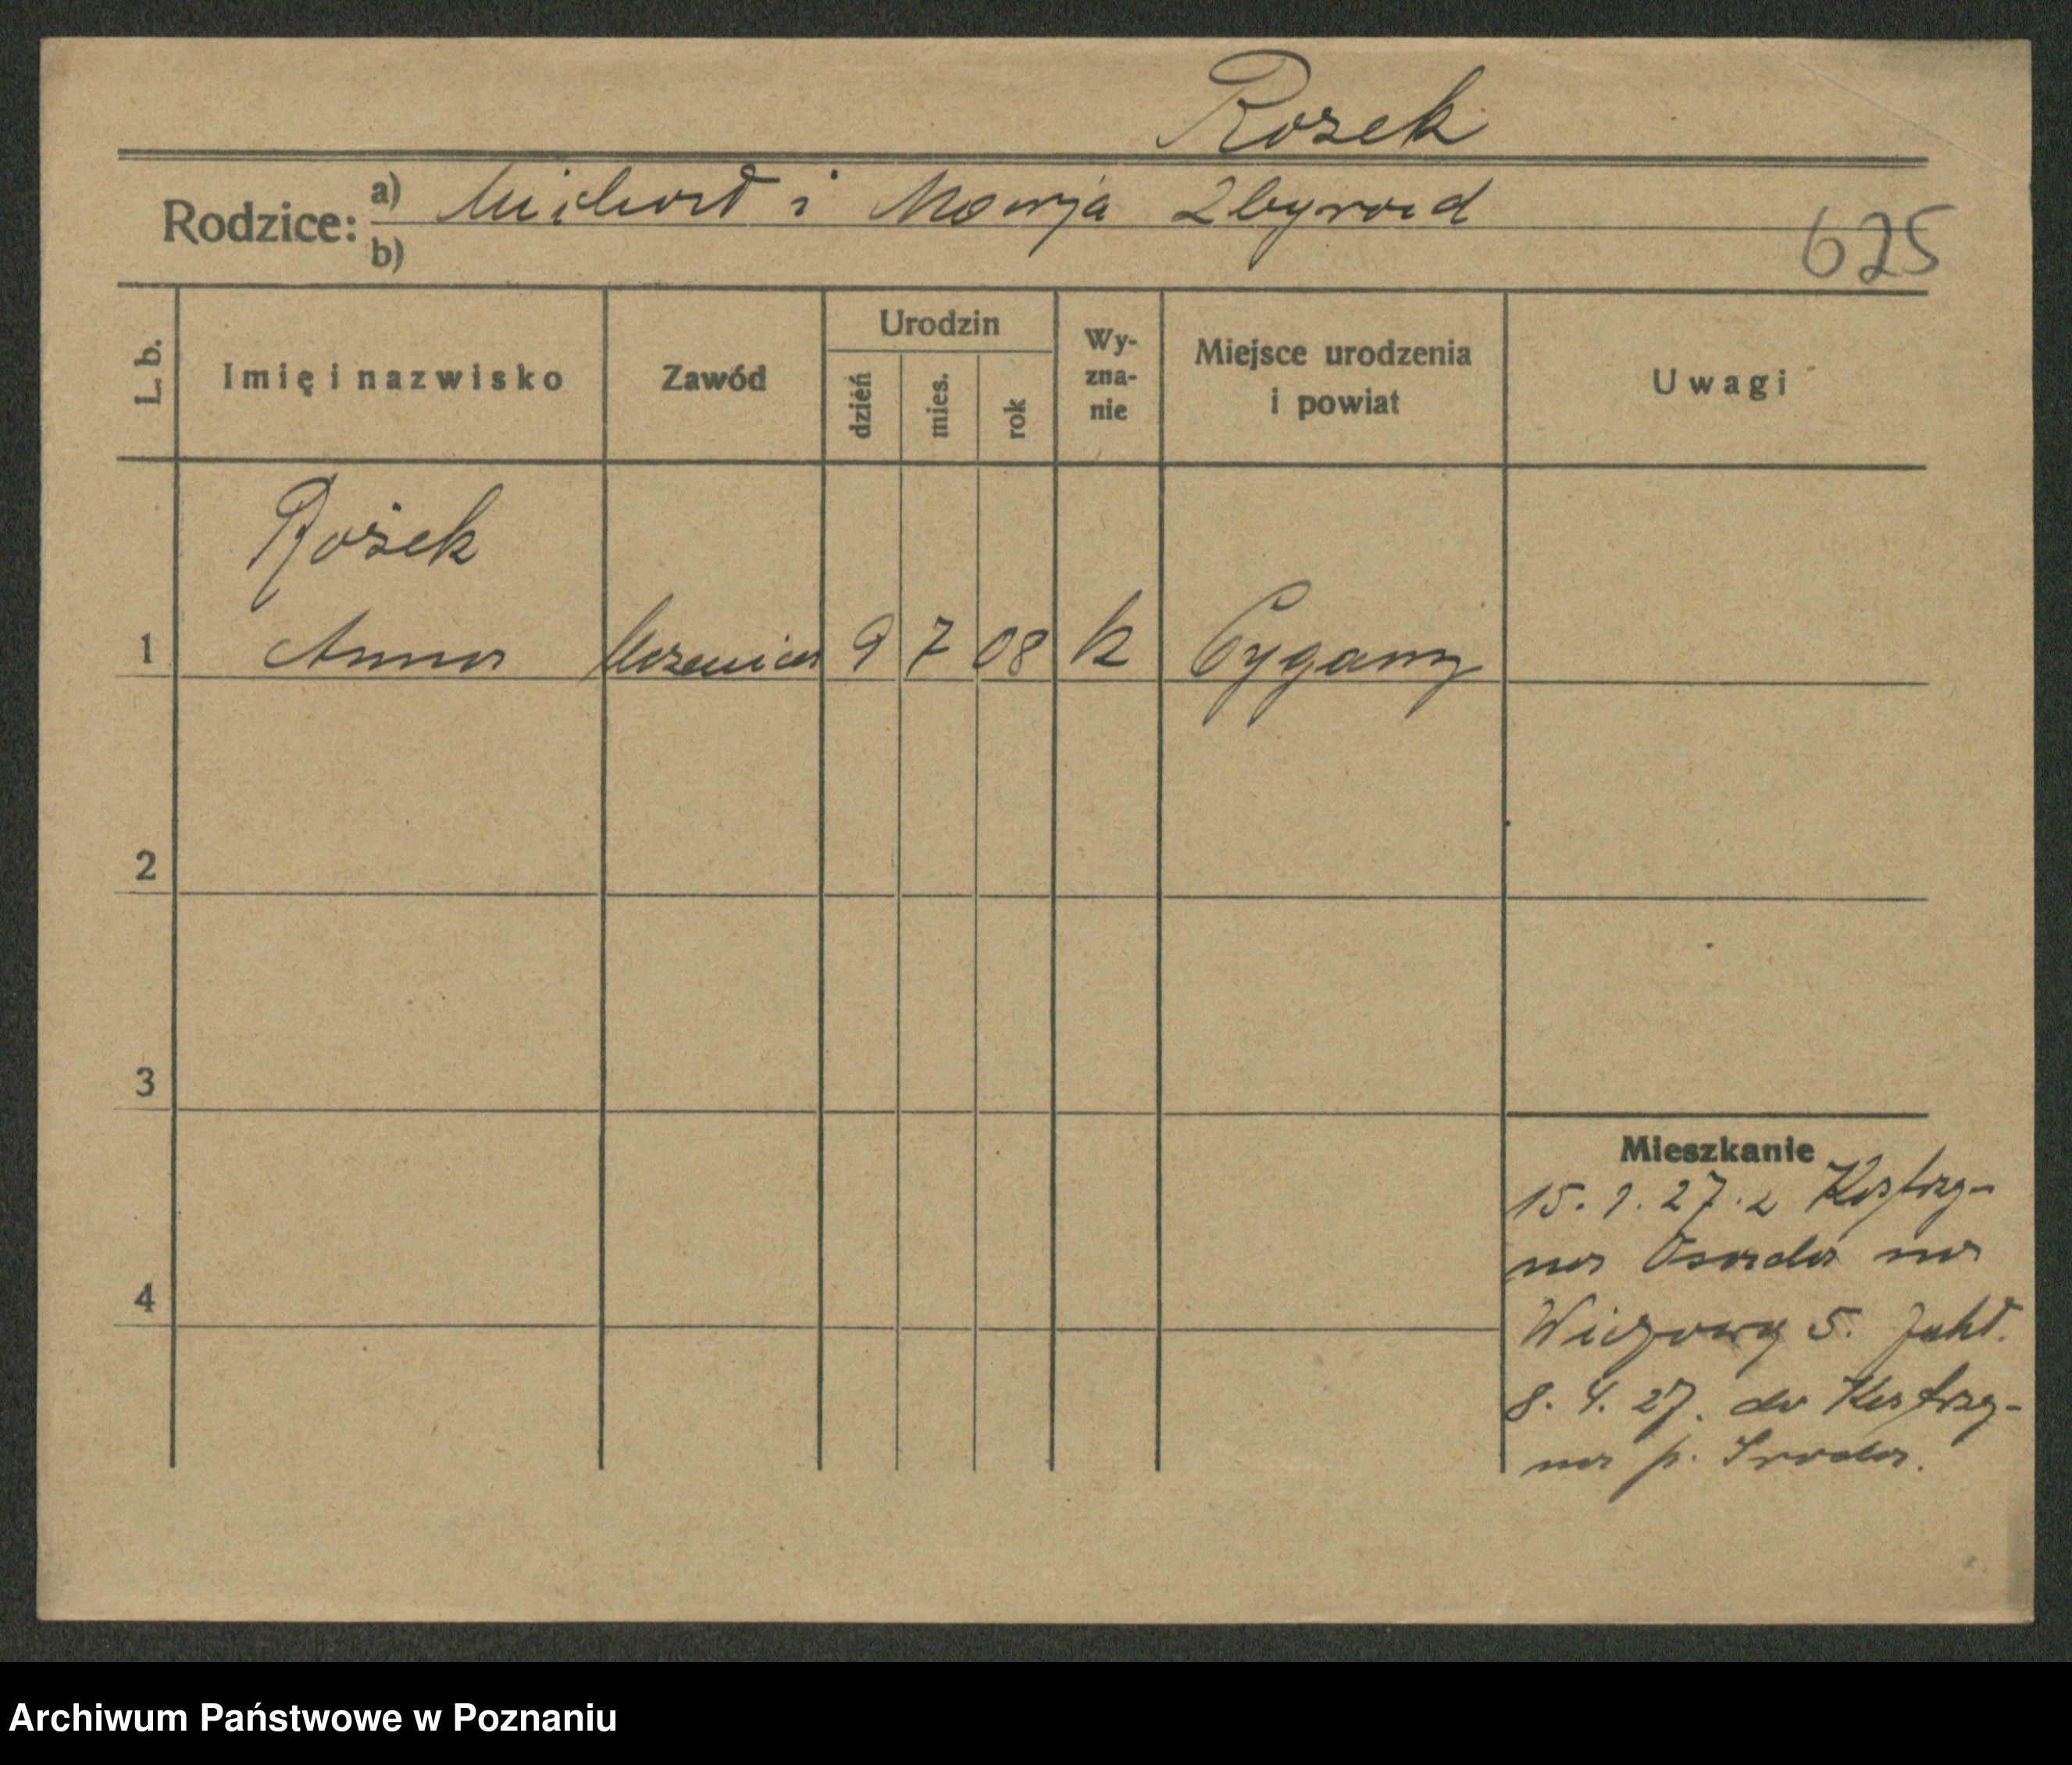 Rosek
Rodzice: a) Michał i Marja Zbyrad
b)
625
L. b.
Imię i nazwisko
Zawód
Urodzin
dzień
mies.
rok
Wy-
zna-
nie
Miejsce urodzenia
i powiat
Uwagi
Rożek
1 Anna uczenica 9 7 08 k Cygany
2
3
4
Mieszkanie
15. 1. 27. z Kostrzy-
na Osada na
5.
8. 4. 27. do Kostrzy-
na p. Środa.
Archiwum Państwowe w Poznaniu